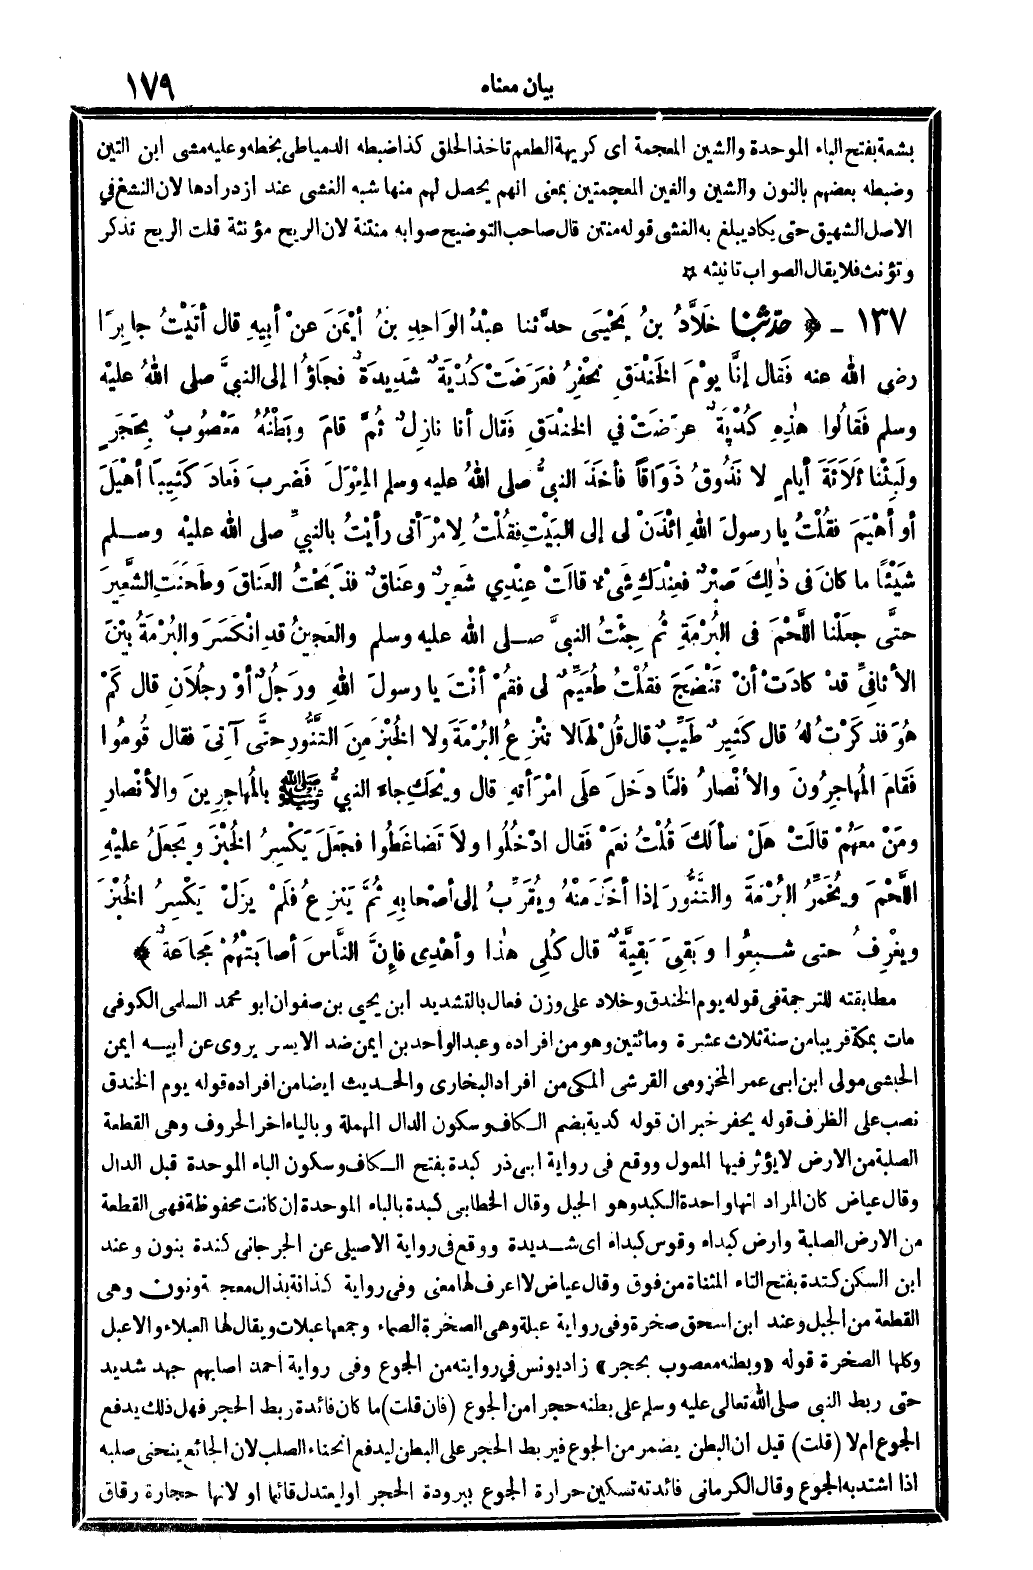 بيان معناه ١٧٩
بشعة بفتح الباء الموحدة والشين المعجمة اى كريهة الطعم تاخذ الحلق كذا ضبطه الدمياطى بخطه وعليه مشى ابن التين
وضبطه بعضهم بالنون والشين والغين المعجمتين بمعنى انهم يحصل لهم منها شبه الغشى عند ازدرادها لان النشغ في
الاصل الشهيق حتى يكاد يبلغ به الغشى قوله منتن قال صاحب التوضيح صوابه منتنة لان الريح مؤنثة قلت الريح تذكر
وتؤنث فلا يقال الصواب تانيثه ☆
١٣٧ - ﴿ حَدَّثَنَا خَلَّادُ بنُ يَحْيَى حدَّثنا عبْدُ الوَاحِدِ بنُ أيْمَنَ عنْ أبِيهِ قال أتَيْتُ جابِرًا
رضى اللهُ عنه فَقال إنَّا يوْمَ الخَنْدَقِ نحْفِرُ فعَرَضَتْ كُدْيَةٌ شَدِيدَةٌ فجَاؤُا إلى النبيَّ صلى اللهُ عليْه
وسلم فَقالُوا هٰذِهِ كُدْيَةٌ عرَضَتْ في الخنْدَقِ فَقال أنا نازِلٌ ثُمَّ قامَ وبَطْنُهُ مَعْصُوبٌ بِحَجَرٍ
ولَبِثْنا ثَلَاثَةَ أيامٍ لا نَذُوقُ ذَوَاقًا فأخَذَ النبيُّ صلى اللهُ عليه وسلم المِعْوَلَ فَضربَ فَعادَ كَثِيبًا أهْيَلَ
أو أهْيَمَ فقُلْتُ يا رسولَ اللهِ ائْذَنْ لى إلى البَيْتِ فقُلْتُ لِامْرَأتى رأيْتُ بالنبيِّ صلى الله عليْه وسلم
شَيْئًا ما كانَ فى ذٰلِكَ صَبْرٌ فعِنْدَكِ شَىْءٌ قالَتْ عِنْدِي شَعِيرٌ وعَناقٌ فذَبَحْتُ العَناقَ وطَحَنَتِ الشَّعِيرَ
حتَّى جعَلْنا اللَّحْمَ فى البُرْمَةِ ثُم جِئْتُ النبيَّ صلى الله عليه وسلم والعَجِينُ قدِ انْكَسَرَ والبُرْمَةُ بيْنَ
الأثافِيِّ قدْ كادَتْ أنْ تَنْضَجَ فقلْتُ طُعَيِّمٌ لى فقمْ أنْتَ يا رسولَ اللهِ ورَجُلٌ أوْ رجُلَانِ قال كَمْ
هُوَ فذ كَرْتُ لهُ قال كَثِيرٌ طَيِّبٌ قال قُلْ لهَا لا تنْزِعُ البُرْمَةَ ولا الخُبْزَ مِنَ التَّنُّورِ حتَّى آتِىَ فقال قُومُوا
فَقامَ المُهاجِرُونَ والأنْصارُ فلمَّا دَخلَ علَى امْرَأتهِ قال ويْحَكِ جاءَ النبيُّ ﷺ بالمُهاجِرِينَ والأنْصارِ
ومَنْ معَهُمْ قالَتْ هَلْ سألَكَ قُلْتُ نعَمْ فَقال ادْخُلُوا ولاَ تَضاغَطُوا فجعَلَ يَكْسِرُ الخُبْزَ ويَجعَلُ عليْهِ
اللَّحْمَ ويُخَمِّرُ البُرْمَةَ والتَّنُّورَ إذا أخَذَ مِنْهُ ويُقَرِّبُ إلى أصْحابِهِ ثُمَّ يَنزِعُ فلَمْ يزَلْ يَكْسِرُ الخُبْزَ
ويغْرِفُ حتى شبِعُوا وبَقِىَ بَقِيَّةٌ قال كُلِى هٰذا وأهْدِى فإنَّ النَّاسَ أصابَتْهُمْ مَجاعَةٌ ﴾
مطابقته للترجمة فى قوله يوم الخندق وخلاد على وزن فعال بالتشديد ابن يحيى بن صفوان ابو محمد السلمى الكوفى
مات بمكة قريبا من سنة ثلاث عشرة ومائتين وهو من افراده وعبد الواحد بن ايمن ضد الايسر يروى عن ابيه ايمن
الحبشى مولى ابن ابى عمر المخزومى القرشى المكى من افراد البخارى والحديث ايضا من افراده قوله يوم الخندق
نصب على الظرف قوله يحفر خبر ان قوله كدية بضم الكاف وسكون الدال المهملة وبالياء اخر الحروف وهى القطعة
الصلبة من الارض لا يؤثر فيها المعول ووقع فى رواية ابى ذر كبدة بفتح الكاف وسكون الباء الموحدة قبل الدال
وقال عياض كان المراد انها واحدة الكبد وهو الجبل وقال الخطابى كبدة بالباء الموحدة إن كانت محفوظة فهى القطعة
من الارض الصلبة وارض كبداء وقوس كبداء اى شديدة ووقع فى رواية الاصيلى عن الجرجانى كندة بنون وعند
ابن السكن كتدة بفتح التاء المثناة من فوق وقال عياض لا اعرف لها معنى وفى رواية كذانة بذال معجمة ونون وهى
القطعة من الجبل وعند ابن اسحق صخرة وفى رواية عبلة وهى الصخرة الصماء وجمعها عبلات ويقال لها العبلاء والاعبل
وكلها الصخرة قوله «وبطنه معصوب بحجر» زاد يونس في روايته من الجوع وفى رواية أحمد اصابهم جهد شديد
حتى ربط النبى صلى الله تعالى عليه وسلم على بطنه حجرا من الجوع (فان قلت) ما كان فائدة ربط الحجر فهل ذلك يدفع
الجوع ام لا (قلت) قيل ان البطن يضمر من الجوع فيربط الحجر على البطن ليدفع انحناء الصلب لان الجائع ينحنى صلبه
اذا اشتد به الجوع وقال الكرمانى فائدته تسكين حرارة الجوع ببرودة الحجر او ليعتدل قائما او لانها حجارة رقاق